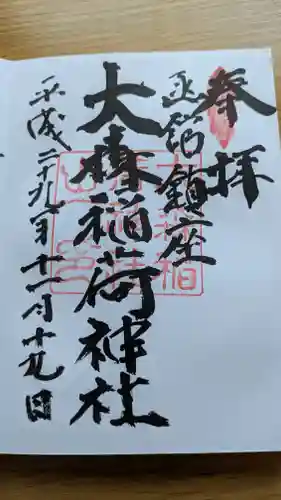 奉拝
函館鎮座
大森稲荷神社
平成二十九年十一月十九日